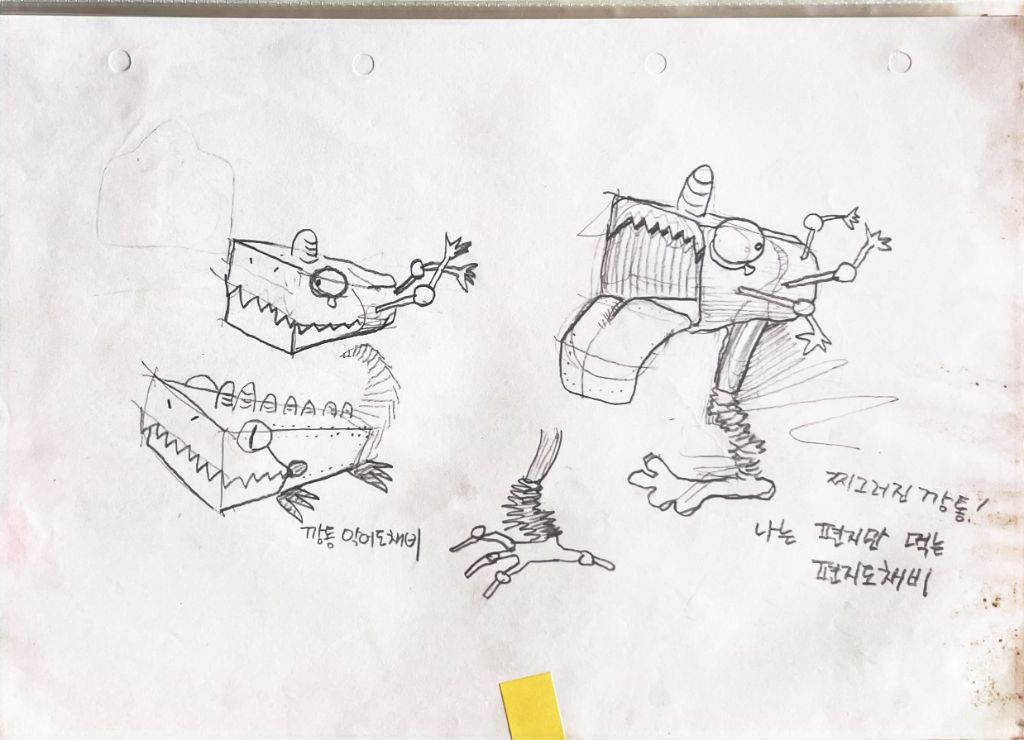 깡통 악어도채비
찌그러진 깡통!
나는 편지만 먹는
편지도채비